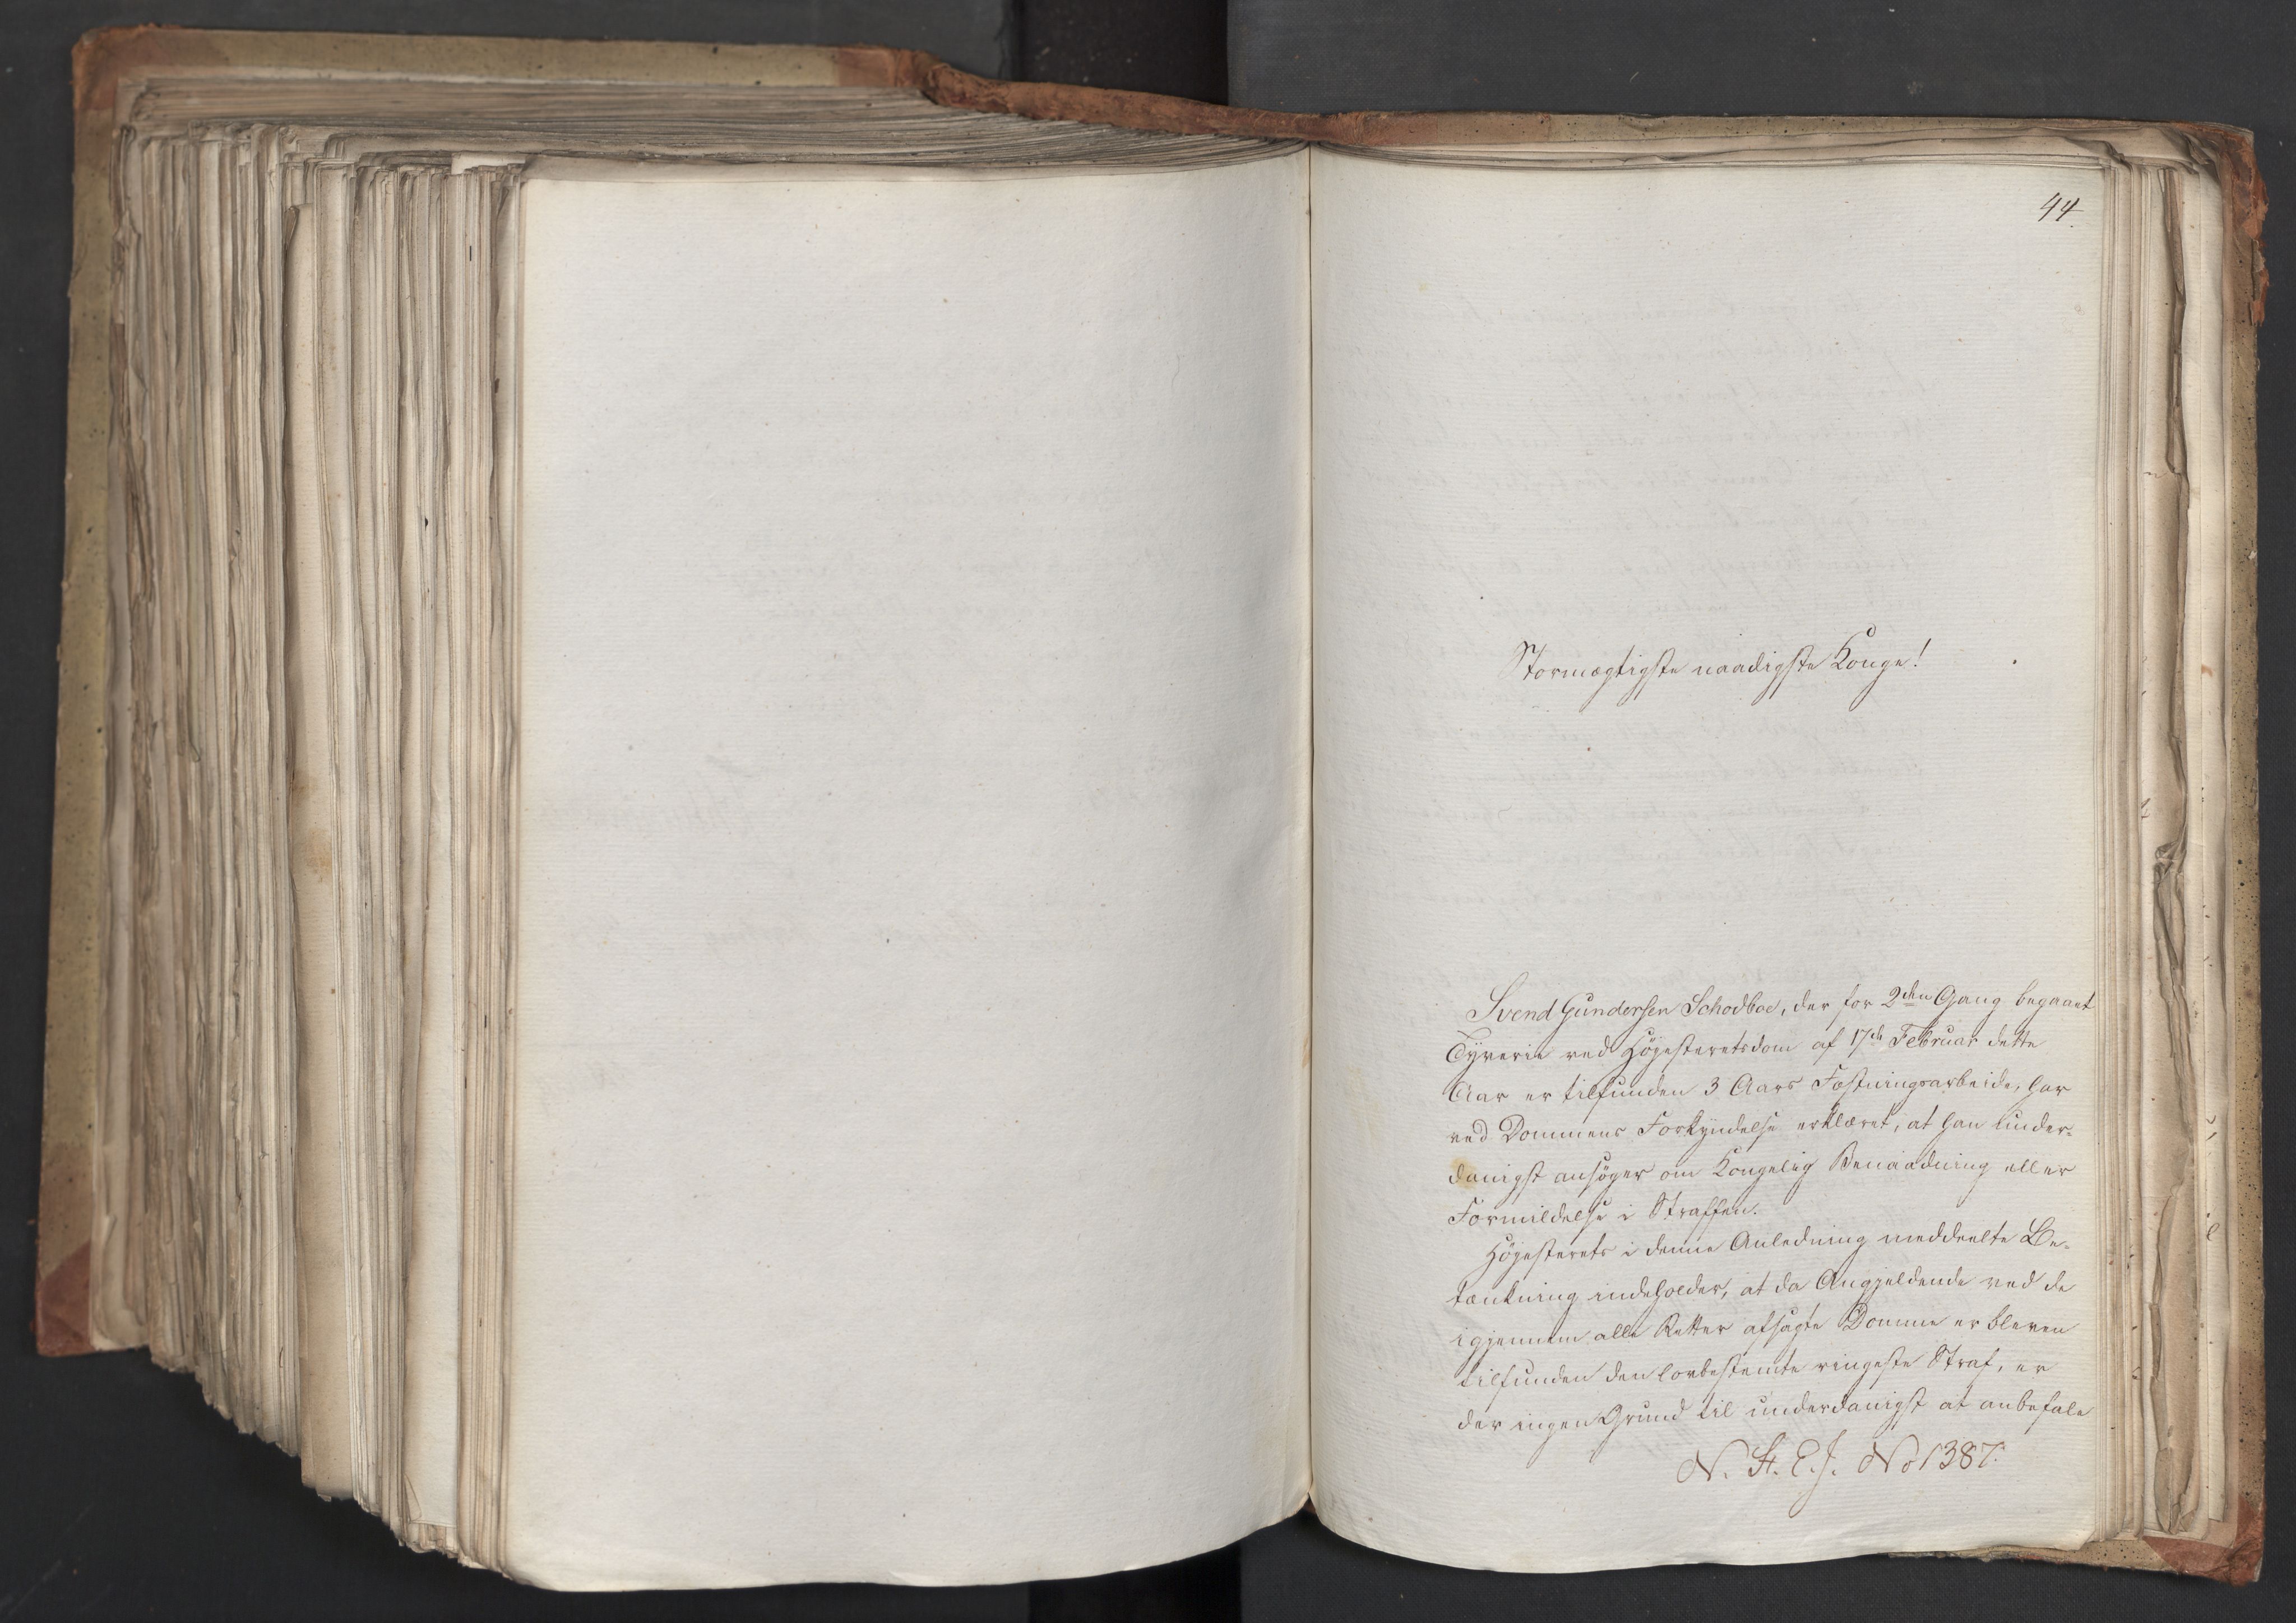 44.
Stormægtigste naadigste Konge!
Svend Gundersen Schodboe, der for 2den Gang begaaet
Tyverie ved Höjesteretsdom af 17de Februar dette
Aar er tilfunden 3 Aars Fæstningsarbeide, har
ved Dommens Forkyndelse erklæret, at han under-
danigst ansöger om Kongelig Benaadning eller
Formildelse i Straffen.
Höjesterets i denne Anledning meddeelte Be-
tænkning indeholder, at da Angjeldende ved de
igjennem alle Retter afsagte Domme er bleven
tilfunden den lovbestemte ringeste Straf, er
der ingen Grund til underdanigst at anbefale
N. St. E. J. No 1387.